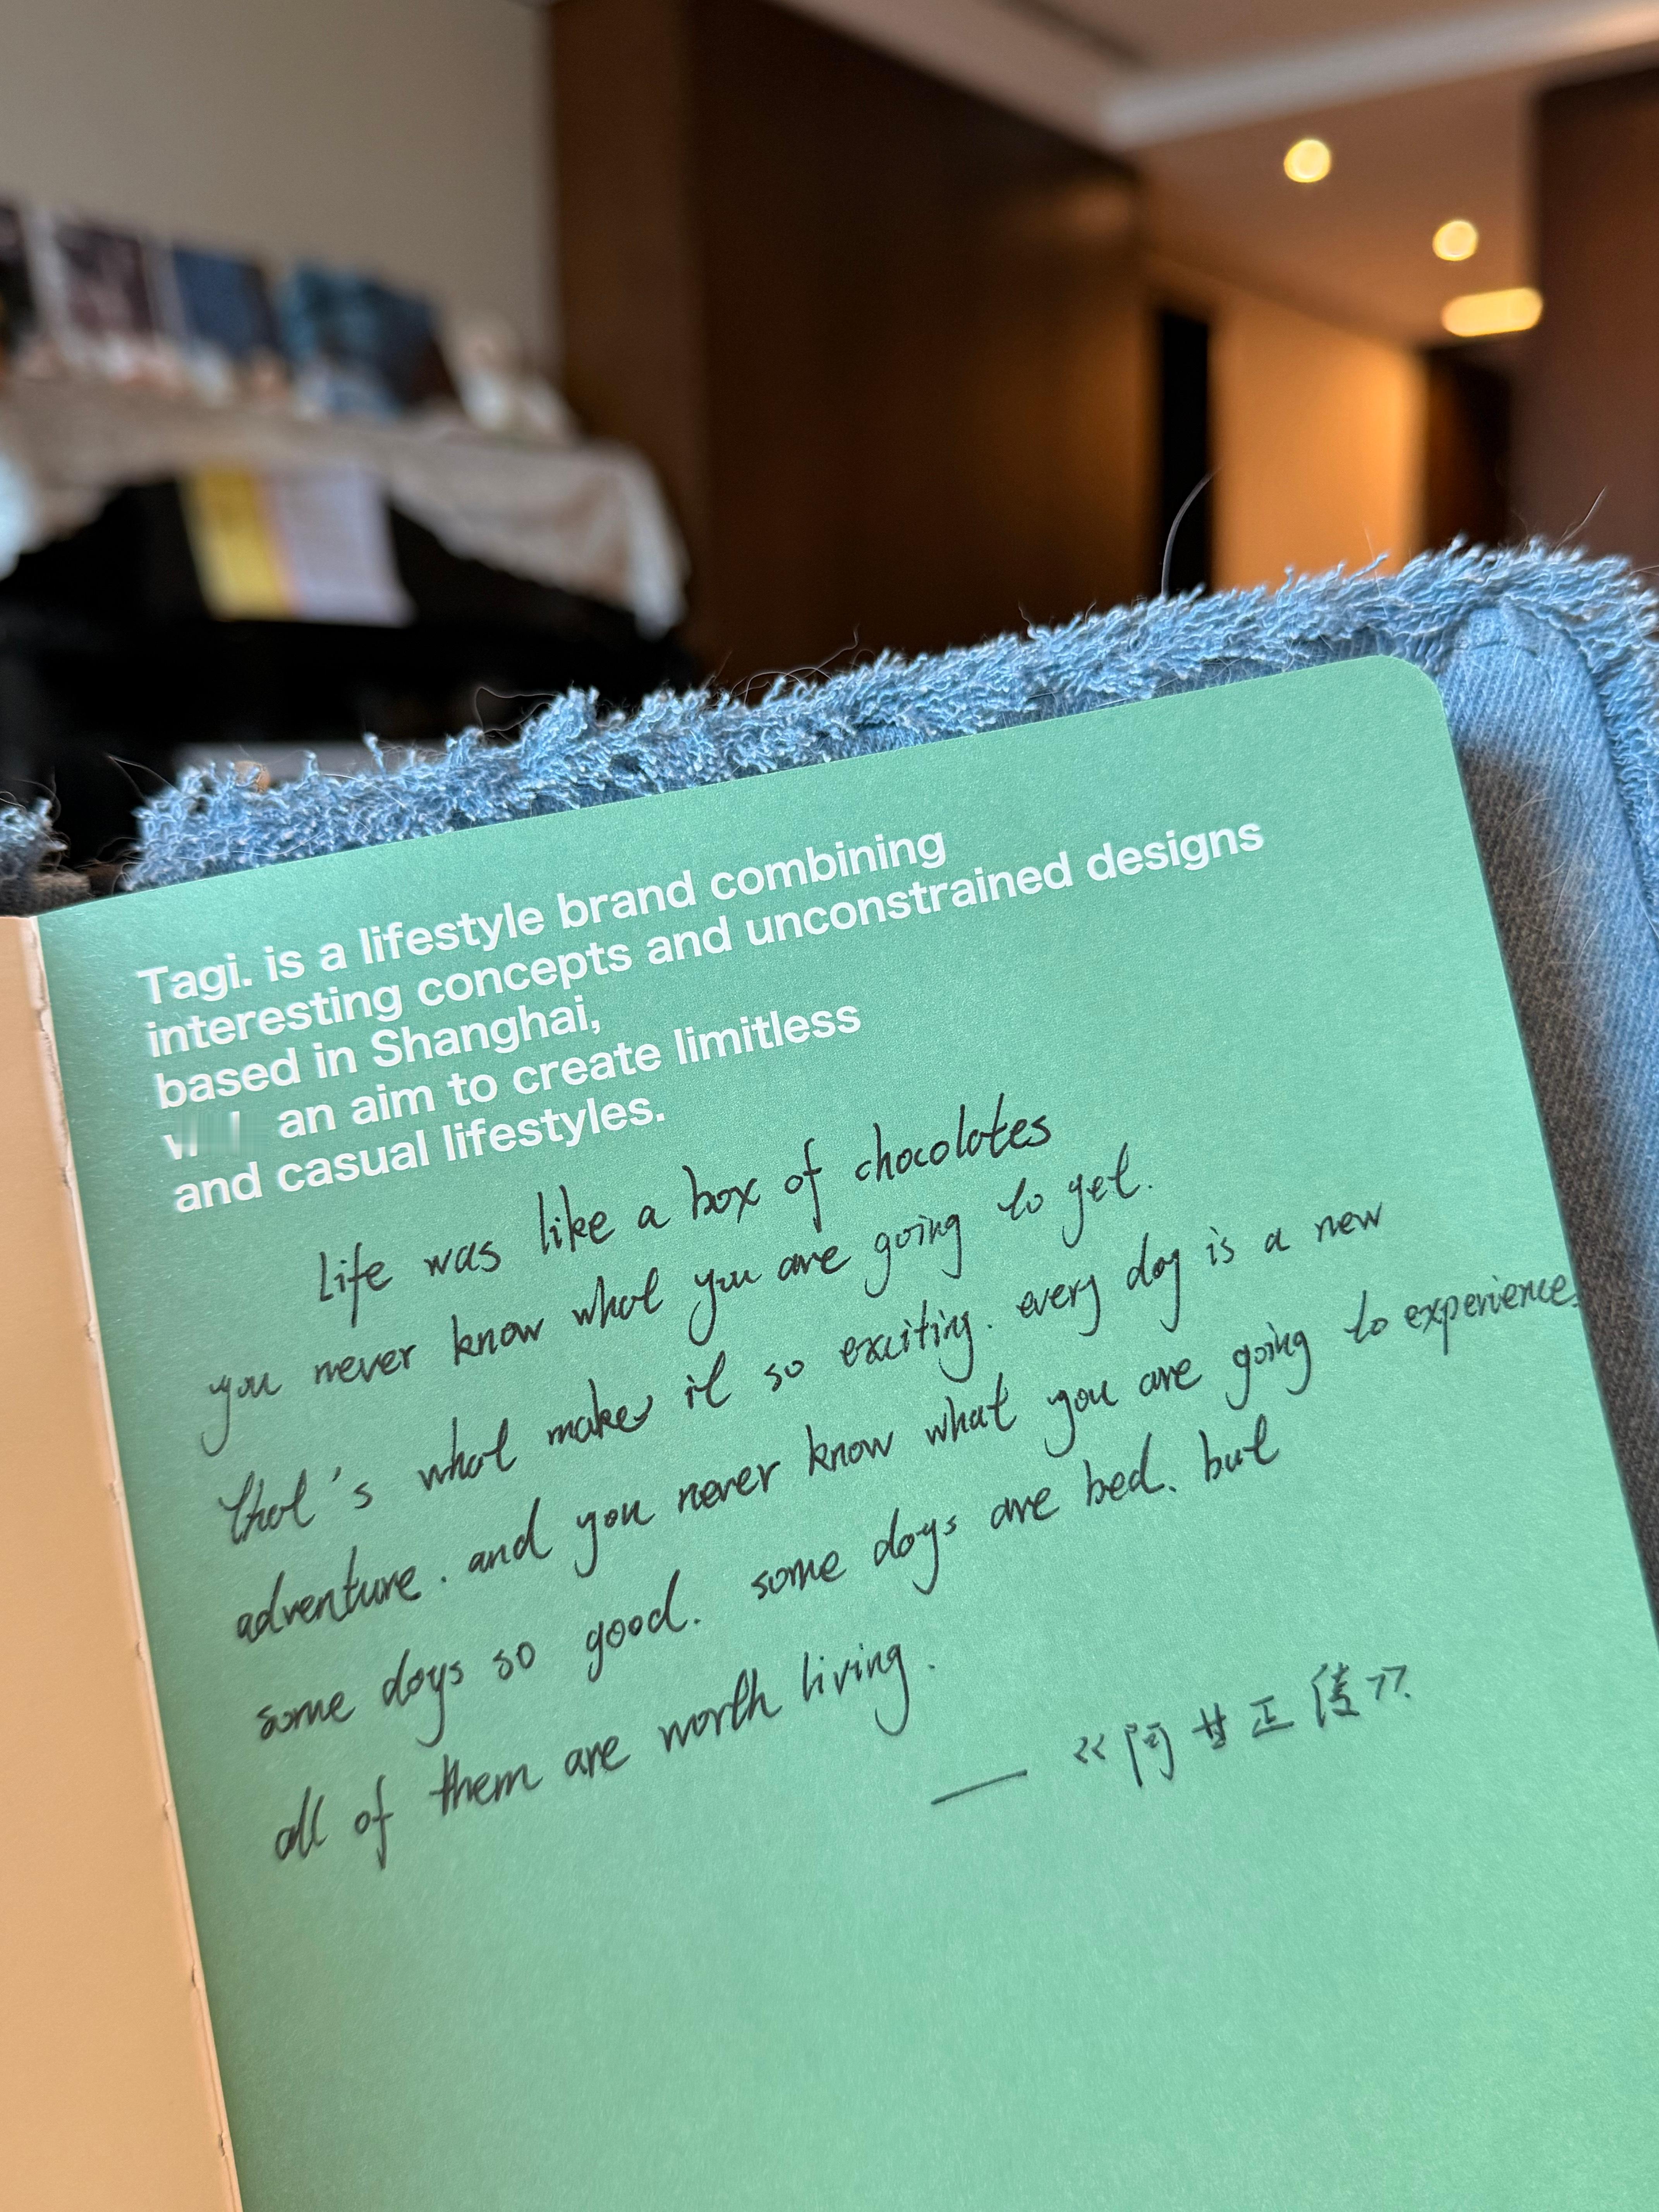 Tagi. is a lifestyle brand combining
interesting concepts and unconstrained designs
based in Shanghai,
an aim to create limitless
and casual lifestyles.
Life was like a box of chocolates
you never know what you are going to get.
that's what makes it so exciting. every day is a new
adventure. and you never know what you are going to experience.
some days so good. some days are bed. but
all of them are worth living.
—— 《阿甘正传》